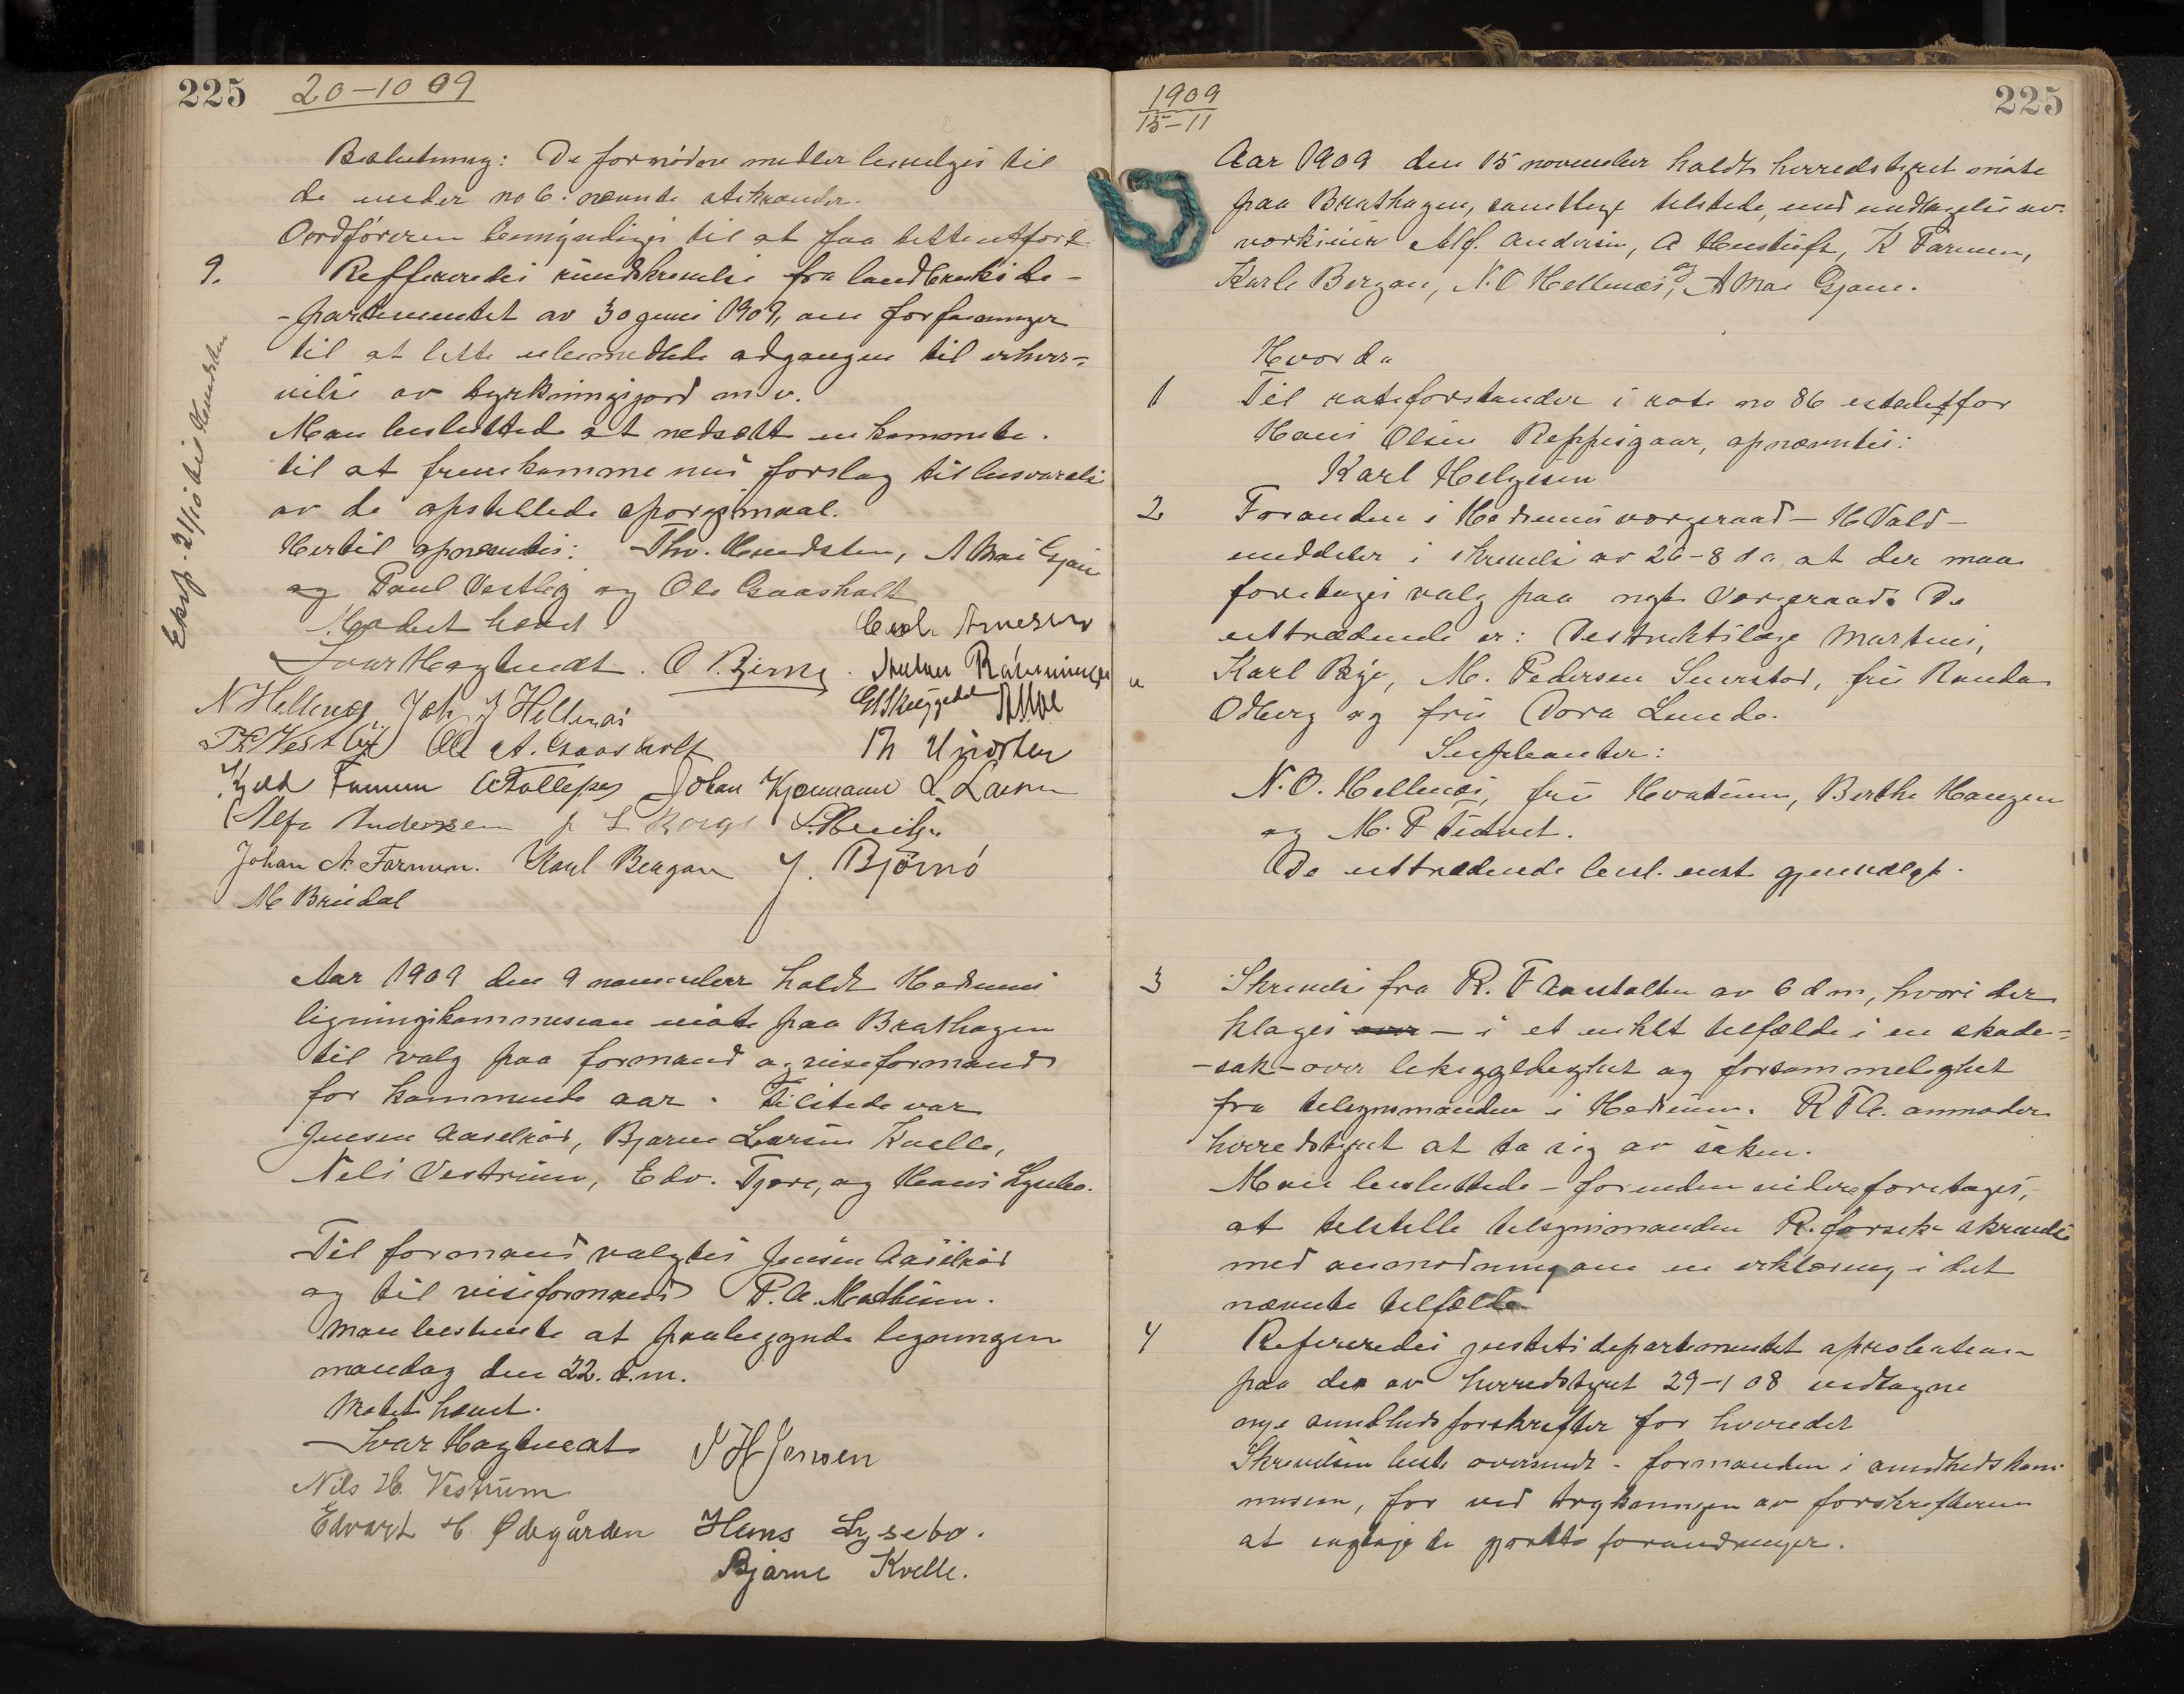 225 20-10 09
Beslutning: De fornødne midler bevilges til
de under no 6. nævnte atekander.
Ordføreren bemyndiges til at faa dette utført.
9. Reffereredes rundskrivelse fra landbruksde-
-partementet av 30 juni 1909, om forføininger
til at lette ubemidlede adgangen til erhver-
velse av dyrkningsjord m v.
Man besluttede at nedsætte en komite.
til at fremkomme med forslag til besvarelse
av de opstillede spørgsmaal.
Hertil opnævntes: Thv. Hemdsten, A Moe Gjøne
og Paul Vestby og Ole Gaasholt
Mødet hævet
Eksp. 21/10 til Hemdsten
Carl Arnesen
Ivar Hagtvedt. O. Bjerng. Anton Rønningen
N Hellenæs Joh. J Hellenæs AMoe
P Vestby Ole A. Gaasholt
Kjeld Farmen Johan Kjemaand L. Larsen
Alfr Andersen
Johan A. Farmen. Karl Bergan J. Bjørnø
M Bredal
Aar 1909 den 9 november holdt Hedrums
ligningskommission møte paa Brathagen
til valg paa formand og viseformand
for kommende aar. Tilstede var
Jensen Aaselrød, Bjarne Larsen Kvelle,
Nils Vestrum, Edv. Tjøre, og Hans Lysebo.
Til formand valgtes Jensen Aaselrød
og til viseformand P. A. Mathisen.
Man bestemte at paabegynde ligningen
mandag den 22. d.m.
Møtet hævet.
Ivar Hagtvedt P H Jensen
Nils H. Vestrum
Edvart H. Ødegården Hans Lysebo.
Bjarne Kvelle.
1909
15-11
225
Aar 1909 den 15 november holdt herredsstyret møte
paa Brathagen, samtlige tilstede, med undtagelse av
Alf. Andersen, K Farmen,
Karl Bergan, N. O Hellenæs, og A Moe Gjøne.
Hvorda
1 Til roteforstander i rote no 86 istedetfor
Hans Olsen Reppesgaar, opnævntes:
Karl Helgesen
2 Formanden i Hedrums vergeraad - H Vold -
meddeler i skrivelse av 26-8 d a, at der maa
foretages valg paa nyt vergeraad. De
uttrædende er: Destriktslæge Martens,
Karl Bøje, M. Pedersen Snerstad, fru Randa
Odberg og fru Dora Lunde.
Supleanter:
N. O. Hellenæs, fru Hvatum, Berthe Haugen
og M. P Tudvet.
De uttrædende besl. enst. gjenvalgt.
3 Skrivelse fra R. F Anstalten av 6 d m, hvori der
klages over - i et enkelt tilfælde i en skade-
-sak - over likegyldighet og forsømmelighet
fra tilsynsmanden i Hedrum. R F A. anmoder
herredstyret at ta sig av saken.
Man besluttede - forinden videre foretages,
at tilstille tilsynsmanden R. forsik. skrivelse
med anmodning om en erklæring i det
nævnte tilfælde
4 Refereredes justitsdepartementet aprobation
paa de av herredstyret 29-1 08 vedtagne
nye sundhedsforskrifter for herredet
Skrivelsen besl. oversendt - formanden i sundhedskom-
mission, for ved trykningen av forskrifterne
at iagttage de gjorte forandringer.